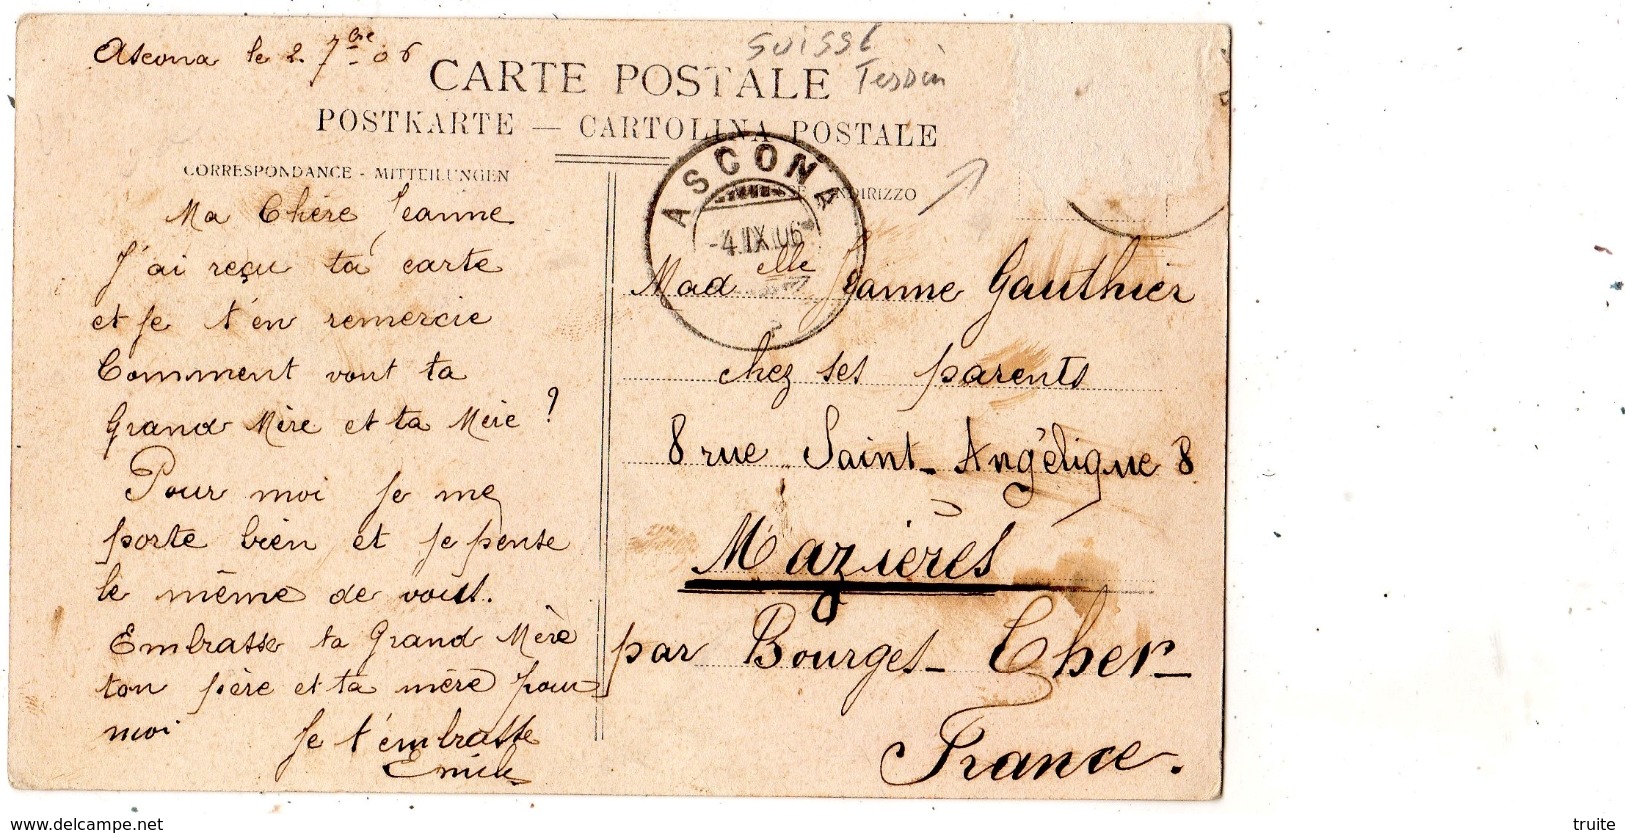 Ascona le 2. 7bre 06
SUISSE
Tessin
CARTE POSTALE
POSTKARTE — CARTOLINA POSTALE
CORRESPONDANCE - MITTEILUNGEN
INDIRIZZO
ASCONA
-4.IX.06
Ma Chère Jeanne
J'ai reçu ta carte
et je t'en remercie
Comment vont ta
Grand Mère et ta Mère ?
Pour moi je me
porte bien et je pense
le même de vous.
Embrasse ta Grand Mère
ton père et ta mère pour
moi
Je t'embrasse
Emile
Madelle Jeanne Gauthier
chez ses parents
8 rue Saint-Angéligue 8
Mazières
par Bourges- Cher-
France.
www.delcampe.net
truite